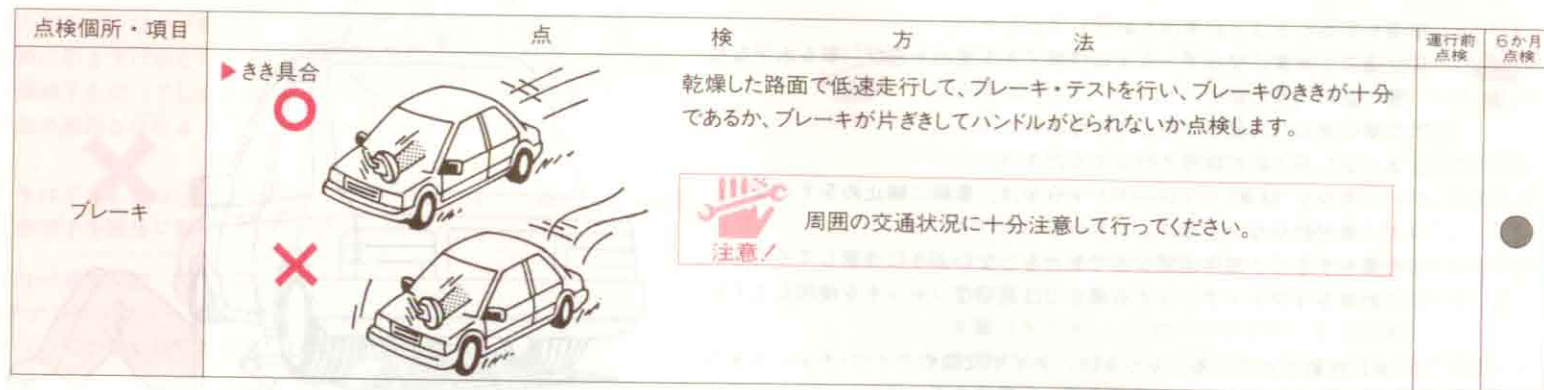 点検個所・項目
点検方法
運行前
点検
6か月
点検
ブレーキ
▶きき具合
乾燥した路面で低速走行して、ブレーキ・テストを行い、ブレーキのききが十分
であるか、ブレーキが片ぎきしてハンドルがとられないか点検します。
注意!
周囲の交通状況に十分注意して行ってください。